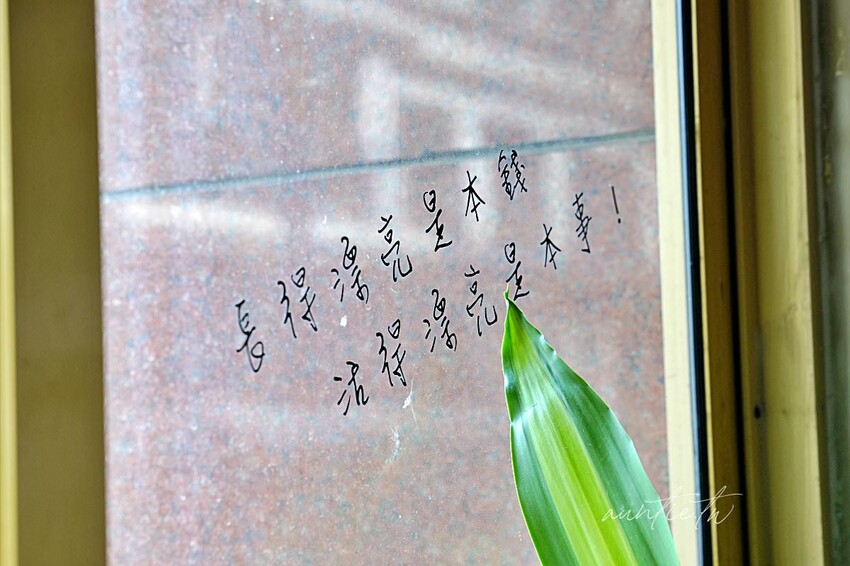 長得漂亮是本錢
活得漂亮是本事！
auntie.tw